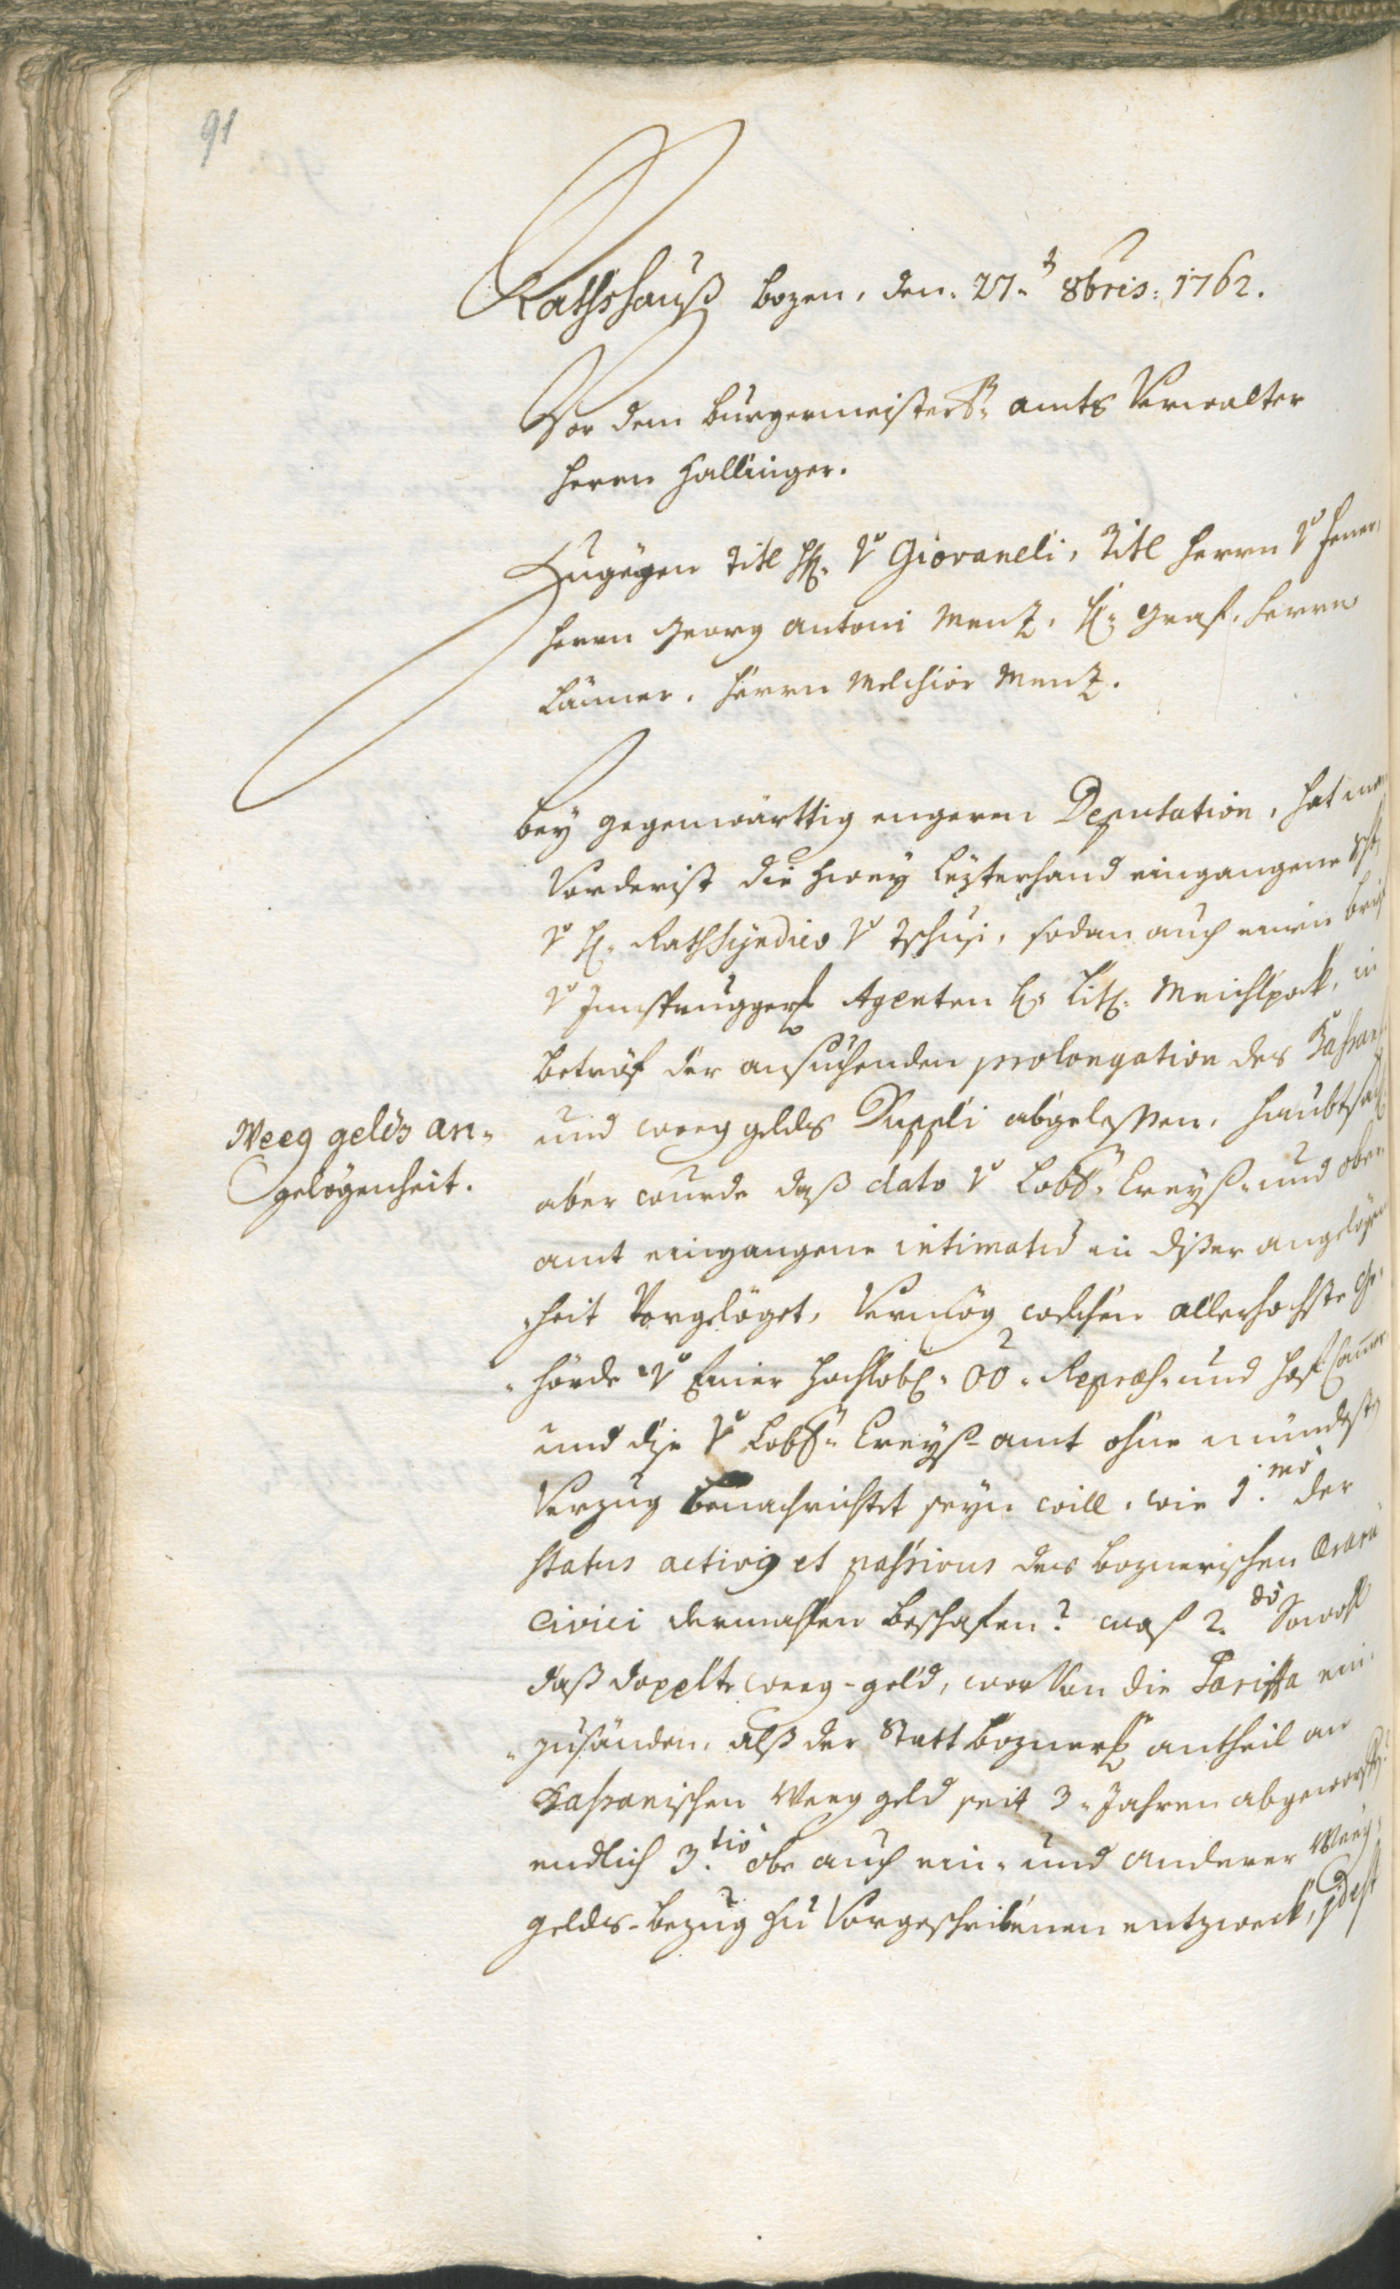 91
Rathshauß bozen, den. 27.t 8bris: 1762.
Vor dem burgermeisters: amts Verwalter
herrn Hallinger.
Zugegen Titl H: v Giovaneli, Titl herrn v
herrn Georg Antoni Menz, H: Graf, herrn
Laimer, herrn Melchior Menz.
bey gegenwärttig engeren Deputation, hat man
Vorderist die zwey lezterhand eingangene
v H: Rath Syndico v Tschusi, sodan auch einen brief
v Innsprugger Agenten H: Lit: Meichlpöck, in
betröf der ansuchenden prolongation des
Weeg gelds an-
gelögenheit.
und weeg gelds Suppli abgelessen, haubtsach
aber wurde daß dato v Lobl: Creyß- und ober
amt eingangene intimatum in diser angelögen
-heit Vorgelöget, Vermög welchen allerhochste
-hörde v Einer Hochlobl: OÖ: Repraes: und Hof Camer
und dise v Lobl: Creyß-amt ohne mindesten
Verzug benachrichtet seyn will, wie 1.mo der
status activus et passivus des boznerischen Aerarii
Civici dermahlen beschafen? was 2.do Sowohl
daß doppelte weeg-geld, wor Von die Tariffa ein-
-zusänden, alß der Statt boznerl: antheil an
Kassanischen Weeg geld seit 3-Jahren abgeworffen?
endlich 3.tio obe auch ein- und anderer Weeg-
gelds-bezug zu Vorgeschribenen entzweck, id est